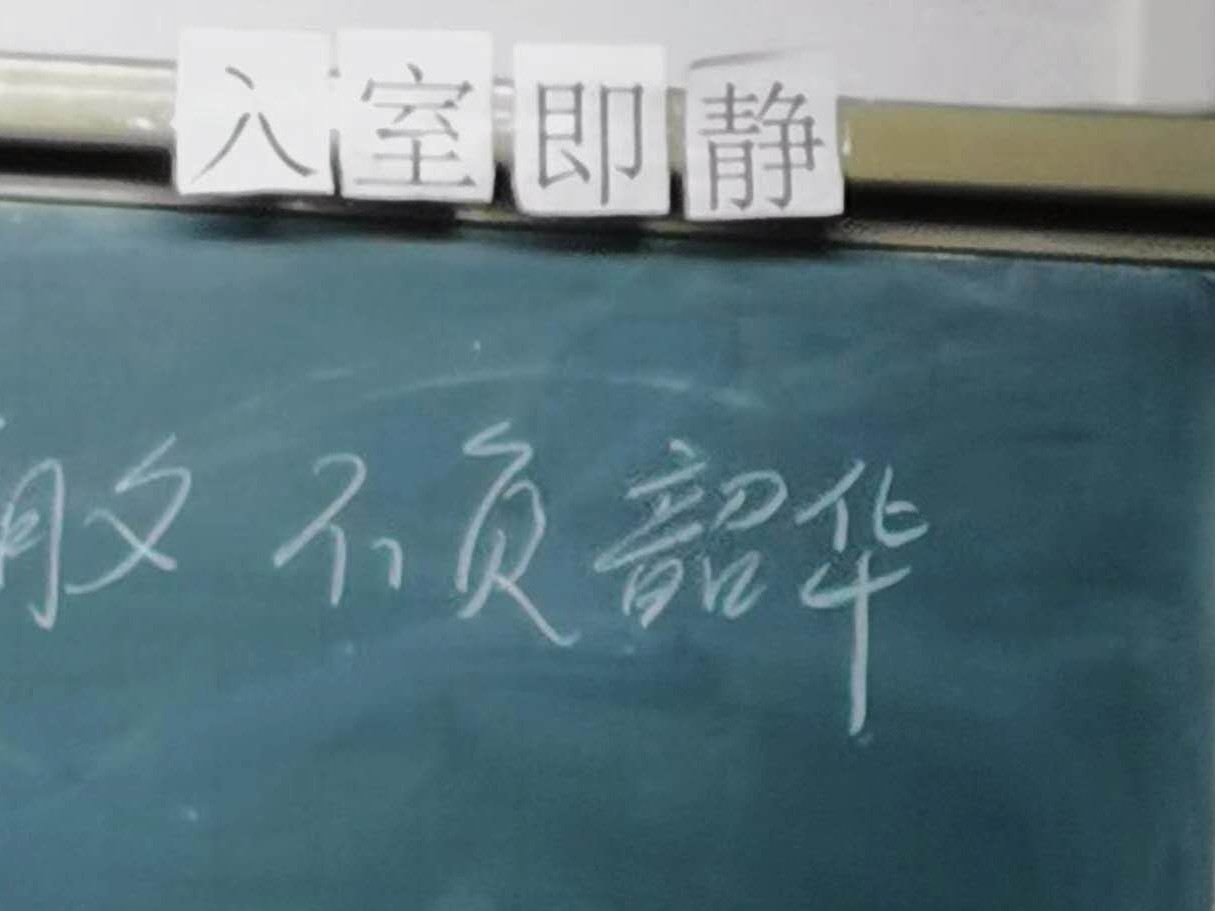 入室即静
不负韶华